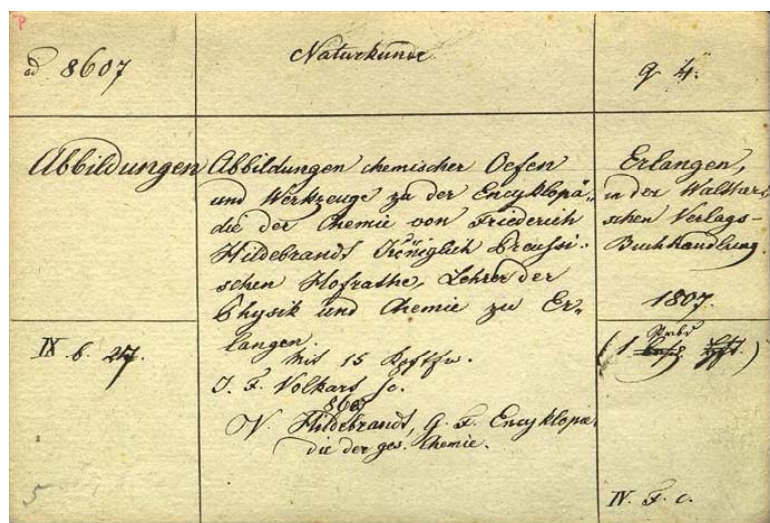 P
ad 8607
Naturkunde
g 4.
Abbildungen
Abbildungen chemischer Oefen
und Werkzeuge zu der Encyklopä-
die der Chemie von Friederich
Hildebrandt Königlich Preussi-
schen Hofrathe, Lehrer der
Physik und Chemie zu Er-
langen.
Mit 15 Kpftfn.
J. F. Volkart sc.
8607
V. Hildebrandt, G. F. Encyklopæ-
die der ges. Chemie.
Erlangen,
in der Walther-
schen Verlags-
Buchhandlung
1807.
IX. b. 27.
(1
)
IV. F. c.
5